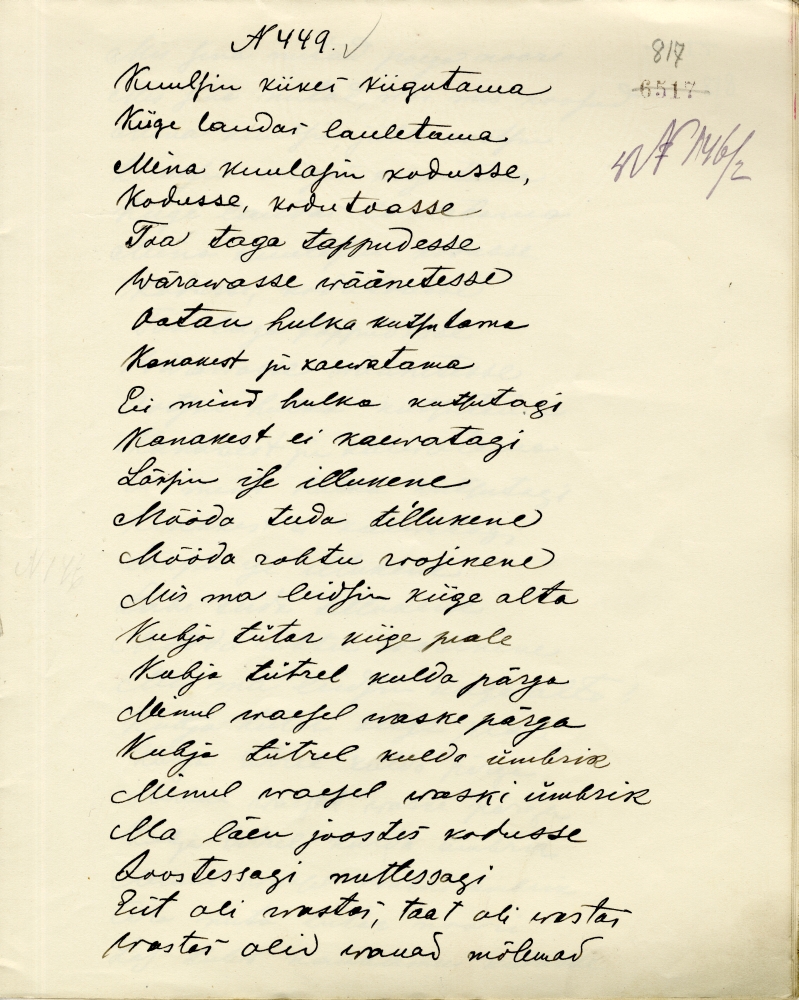 N 449.
817
6517
Kuulsin kiikes kiigutama
Kiige laudas lauletama
Mina kuulasin kodusse,
Kodusse, kodutoasse
Toa taga tappudesse
Wärawasse wäänetesse
Ootan hulka kutsutama
Kanakest ju kaewatama
Ei mind hulka kutsutagi
Kanakest ei kaewatagi
Läksin ise illukene
Mööda tuda tillukene
Mööda rohtu roosikene
Mis ma leidsin kiige alta
Kubja tütar kiige peale
Kubja tütrel kulda pärga
Minul waesel waske pärga
Kubja tütrel kulda ümbrik
Minul waesel waski ümbrik
Ma läen joostes kodusse
Joostessagi nuttessagi
Eit oli wastas, taat oli wastas
Wastas olid wanad mõlemad